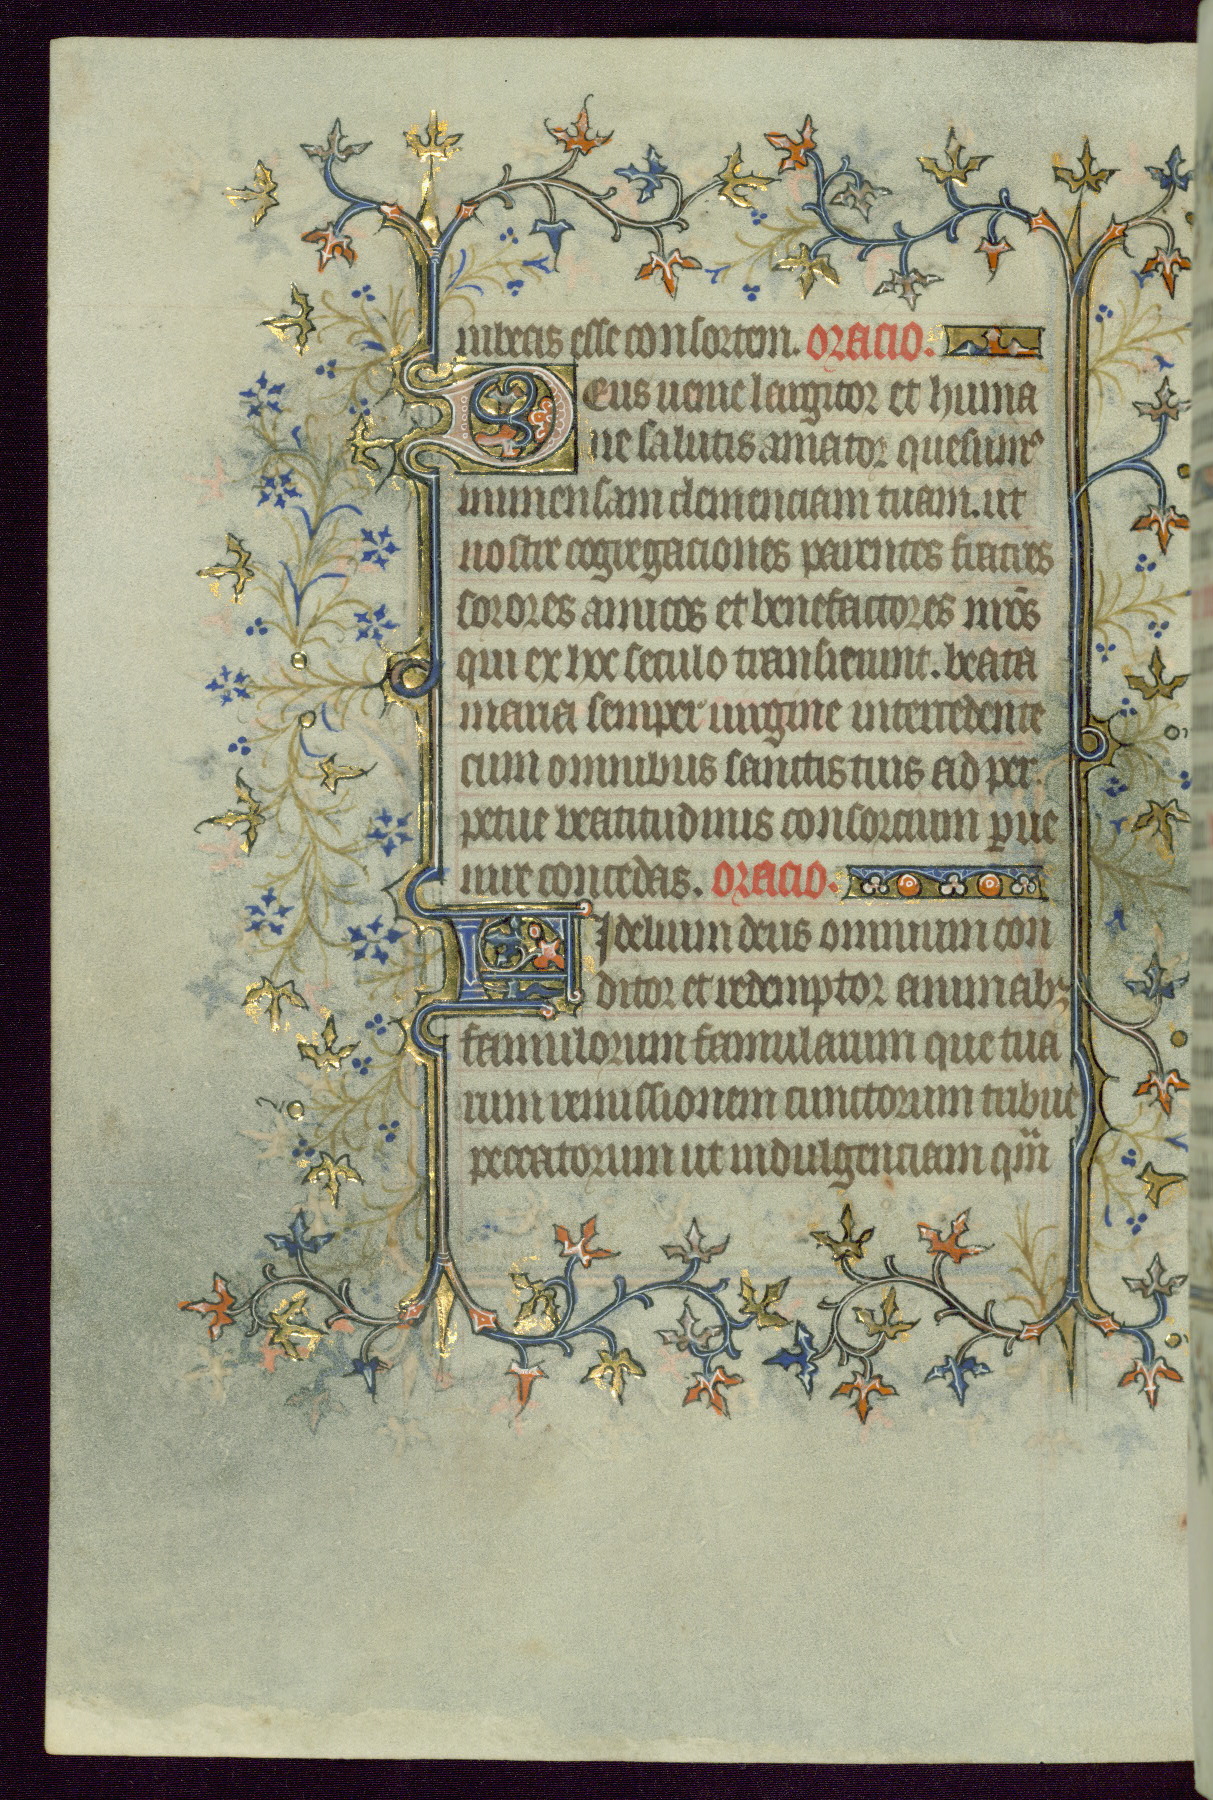 iubeas esse consortem. Oracio.
Deus uenie largitor et huma
ne salutis amator quesumꝰ
immensam clemenciam tuam. ut
nostre cogregaciones parentes fratres
sorores amicos et benefactores nr̄os
qui ex hoc seculo transierunt. beata
maria semper uirgine intercedente
cum omnibus sanctis tuis ad per
petue beatitudinis consorcium ꝑue
nire concedas. Oracio.
Fidelium deus omnium con
ditor et redemptor animabꝫ
famulorum famularum que tua
rum remissionem cunctorum tribue
peccatorum ut indulgenciam qm̄